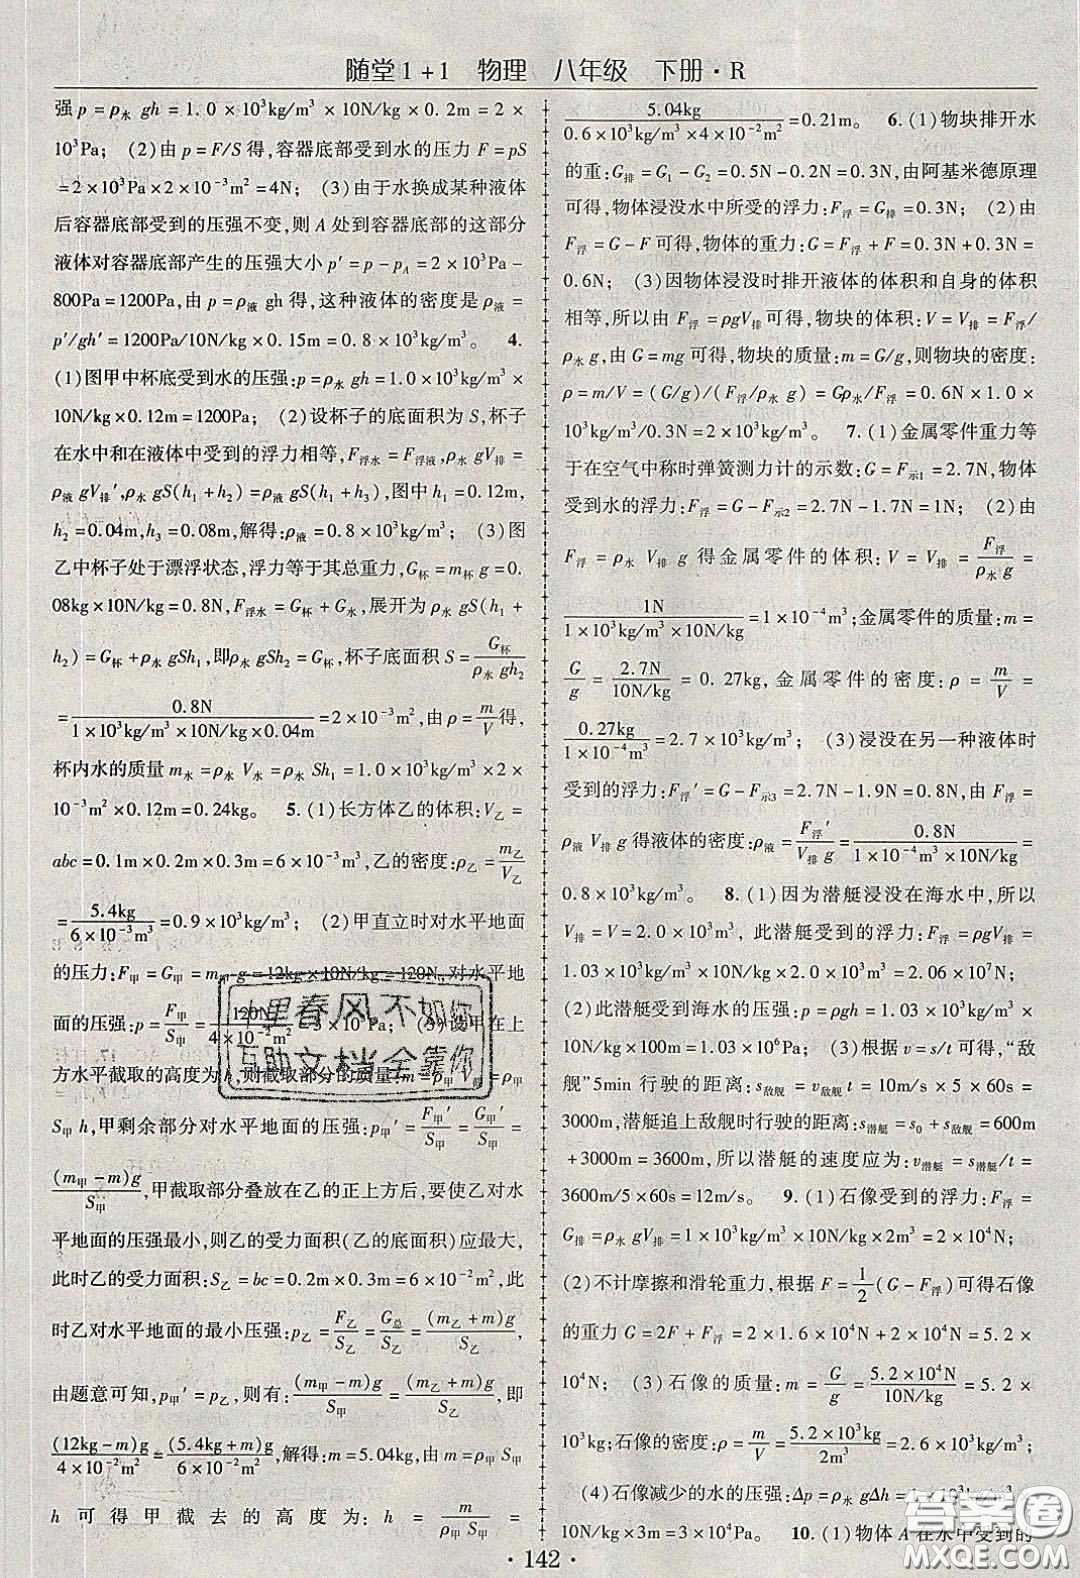 随堂1+1 物理 八年级 下册·R
强p=ρ水 gh=1.0×10³kg/m³×10N/kg×0.2m=2×
10³Pa; (2)由p=F/S得,容器底部受到水的压力F=pS
=2×10³Pa×2×10⁻³m²=4N; (3)由于水换成某种液体
后容器底部受到的压强不变,则A处到容器底部的这部分
液体对容器底部产生的压强大小p′=p-pA=2×10³Pa-
800Pa=1200Pa,由p=ρ液 gh得,这种液体的密度是ρ液=
p′/gh′=1200Pa/10N/kg×0.15m=0.8×10³kg/m³ 4.
(1)图甲中杯底受到水的压强:p=ρ水 gh=1.0×10³kg/m³×
10N/kg×0.12m=1200Pa; (2)设杯子的底面积为S,杯子
在水中和在液体中受到的浮力相等,F浮水=F浮液,ρ水 gV排=
ρ液 gV排′,ρ水 gS(h₁+h₂)=ρ液 gS(h₁+h₃),图中h₁=0.12m,
h₂=0.04m,h₃=0.08m,解得:ρ液=0.8×10³kg/m³; (3)图
乙中杯子处于漂浮状态,浮力等于其总重力,G杯=m杯 g=0.
08kg×10N/kg=0.8N,F浮水=G杯+G水,展开为ρ水 gS(h₁+
h₂)=G杯+ρ水 gSh₁,即ρ水 gSh₂=G杯,杯子底面积S=G杯/ρ水 gh₂
=0.8N/1×10³kg/m³×10N/kg×0.04m=2×10⁻³m²,由ρ=m/V得,
杯内水的质量m水=ρ水 V水=ρ水 Sh₁=1.0×10³kg/m³×2×
10⁻³m²×0.12m=0.24kg。 5.(1)长方体乙的体积:V乙=
abc=0.1m×0.2m×0.3m=6×10⁻³m³,乙的密度:ρ乙=m乙/V乙
=5.4kg/6×10⁻³m³=0.9×10³kg/m³; (2)甲直立时对水平地面
的压力:F甲=G甲=m甲 g=12kg×10N/kg=120N,对水平地
面的压强:p=F甲/S甲=120N/4×10⁻²m²=3×10³Pa; (3)设甲在上
方水平截取的高度为h,则截取部分的质量:m=ρ甲
S甲 h,甲剩余部分对水平地面的压强:p甲′=F甲′/S甲=G甲′/S甲=
(m甲-m)g/S甲,甲截取部分叠放在乙的正上方后,要使乙对水
平地面的压强最小,则乙的受力面积(乙的底面积)应最大,
此时乙的受力面积:S乙=bc=0.2m×0.3m=6×10⁻²m²,此
时乙对水平地面的最小压强:p乙=F乙/S乙=G总/S乙=(m乙+m)g/S乙,
由题意可知,p甲′=p乙,则有:(m甲-m)g/S甲=(m乙+m)g/S乙,即
(12kg-m)g/4×10⁻²m²=(5.4kg+m)g/6×10⁻²m²,解得:m=5.04kg,由m=ρ甲 S甲
h可得甲截去的高度为:h=m/ρ甲 S甲=
5.04kg/0.6×10³kg/m³×4×10⁻²m²=0.21m。 6.(1)物块排开水
的重:G排=G₁-G₂=0.5N-0.2N=0.3N,由阿基米德原理
可得,物体浸没水中所受的浮力:F浮=G排=0.3N; (2)由
F浮=G-F可得,物体的重力:G=F浮+F=0.3N+0.3N=
0.6N; (3)因物体浸没时排开液体的体积和自身的体积
相等,所以由F浮=ρgV排可得,物块的体积:V=V排=F浮/
ρ水 g,由G=mg可得,物块的质量:m=G/g,则物块的密度:
ρ=m/V=(G/g)/(F浮/ρ水 g)=Gρ水/F浮=0.6N×1.0×
10³kg/m³/0.3N=2×10³kg/m³。 7.(1)金属零件重力等
于在空气中称时弹簧测力计的示数:G=F示1=2.7N,物体
受到水的浮力:F浮=G-F示2=2.7N-1.7N=1N; (2)由
F浮=ρ水 V排 g得金属零件的体积:V=V排=F浮/ρ水 g=
1N/1×10³kg/m³×10N/kg=1×10⁻⁴m³;金属零件的质量:m=
G/g=2.7N/10N/kg=0.27kg,金属零件的密度:ρ=m/V=
0.27kg/1×10⁻⁴m³=2.7×10³kg/m³; (3)浸没在另一种液体时
受到的浮力:F浮′=G-F示3=2.7N-1.9N=0.8N,由F浮=
ρ液 V排 g得液体的密度:ρ液=F浮′/V排 g=0.8N/1×10⁻⁴m³×10N/kg=
0.8×10³kg/m³。 8.(1)因为潜艇浸没在海水中,所以
V排=V=2.0×10³m³,此潜艇受到的浮力:F浮=ρgV排=
1.03×10³kg/m³×10N/kg×2.0×10³m³=2.06×10⁷N;
(2)此潜艇受到海水的压强:p=ρgh=1.03×10³kg/m³×
10N/kg×100m=1.03×10⁶Pa; (3)根据v=s/t可得,“敌
舰”5min行驶的距离:s敌舰=v敌舰 t=10m/s×5×60s=
3000m,潜艇追上敌舰时行驶的距离:s潜艇=s₀+s敌舰=600m
+3000m=3600m,所以潜艇的速度应为:v潜艇=s潜艇/t=
3600m/5×60s=12m/s。 9.(1)石像受到的浮力:F浮=
G排=ρ水 gV排=1×10³kg/m³×10N/kg×2m³=2×10⁴N;
(2)不计摩擦和滑轮重力,根据F=1/2(G-F浮)可得石像
的重力G=2F+F浮=2×1.6×10⁴N+2×10⁴N=5.2×
10⁴N; (3)石像的质量:m=G/g=5.2×10⁴N/10N/kg=5.2×
10³kg;石像的密度:ρ=m/V=5.2×10³kg/2m³=2.6×10³kg/m³;
(4)石像减少的水的压强:Δp=ρ水 gΔh=1×10³kg/m³×
10N/kg×3m=3×10⁴Pa。 10.(1)物体A在水中受到的
十里春风不如你
互助文档全靠你
答案圈
MXQE.COM
·142·